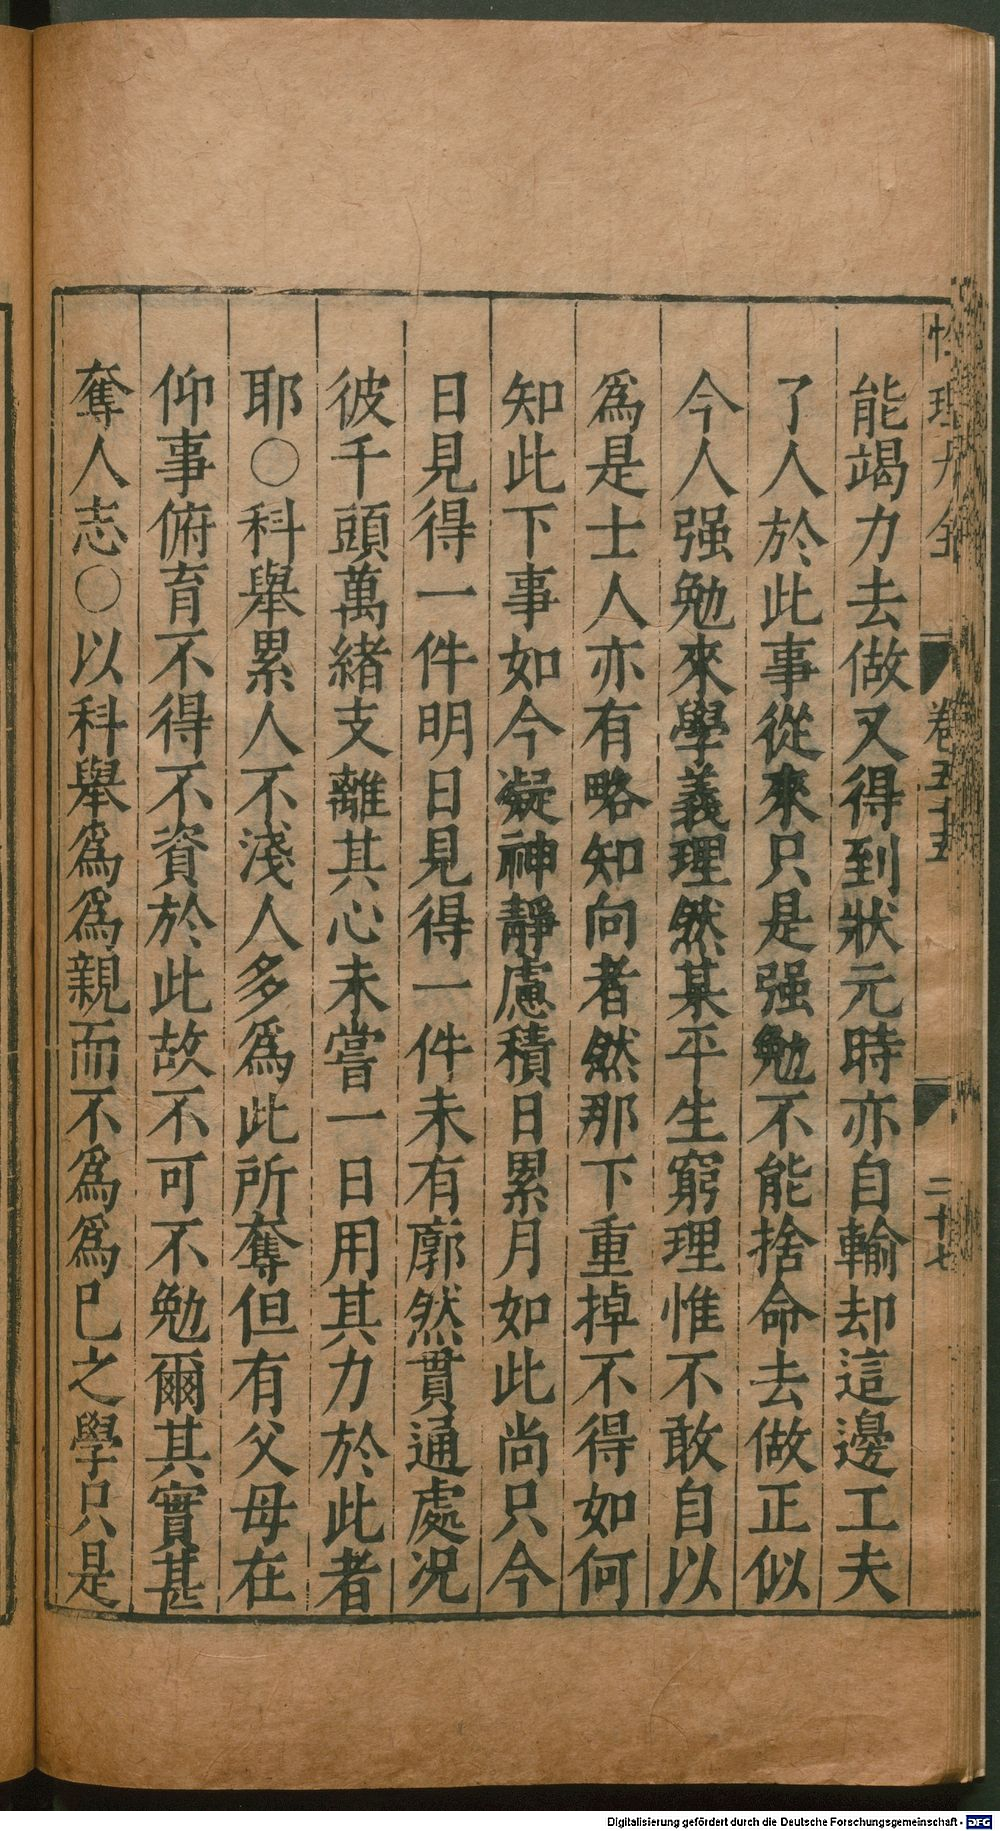 性理大全 卷五十五 二十七
能竭力去做又得到狀元時亦自輸却這邊工夫
了人於此事從來只是强勉不能捨命去做正似
今人强勉來學義理然某平生窮理惟不敢自以
爲是士人亦有略知向者然那下重掉不得如何
知此下事如今凝神靜慮積日累月如此尚只今
日見得一件明日見得一件未有廓然貫通處况
彼千頭萬緒支離其心未嘗一日用其力於此者
耶○科舉累人不淺人多爲此所奪但有父母在
仰事俯育不得不資於此故不可不勉爾其實甚
奪人志○以科舉爲爲親而不爲爲巳之學只是
Digitalisierung gefördert durch die Deutsche Forschungsgemeinschaft - DFG